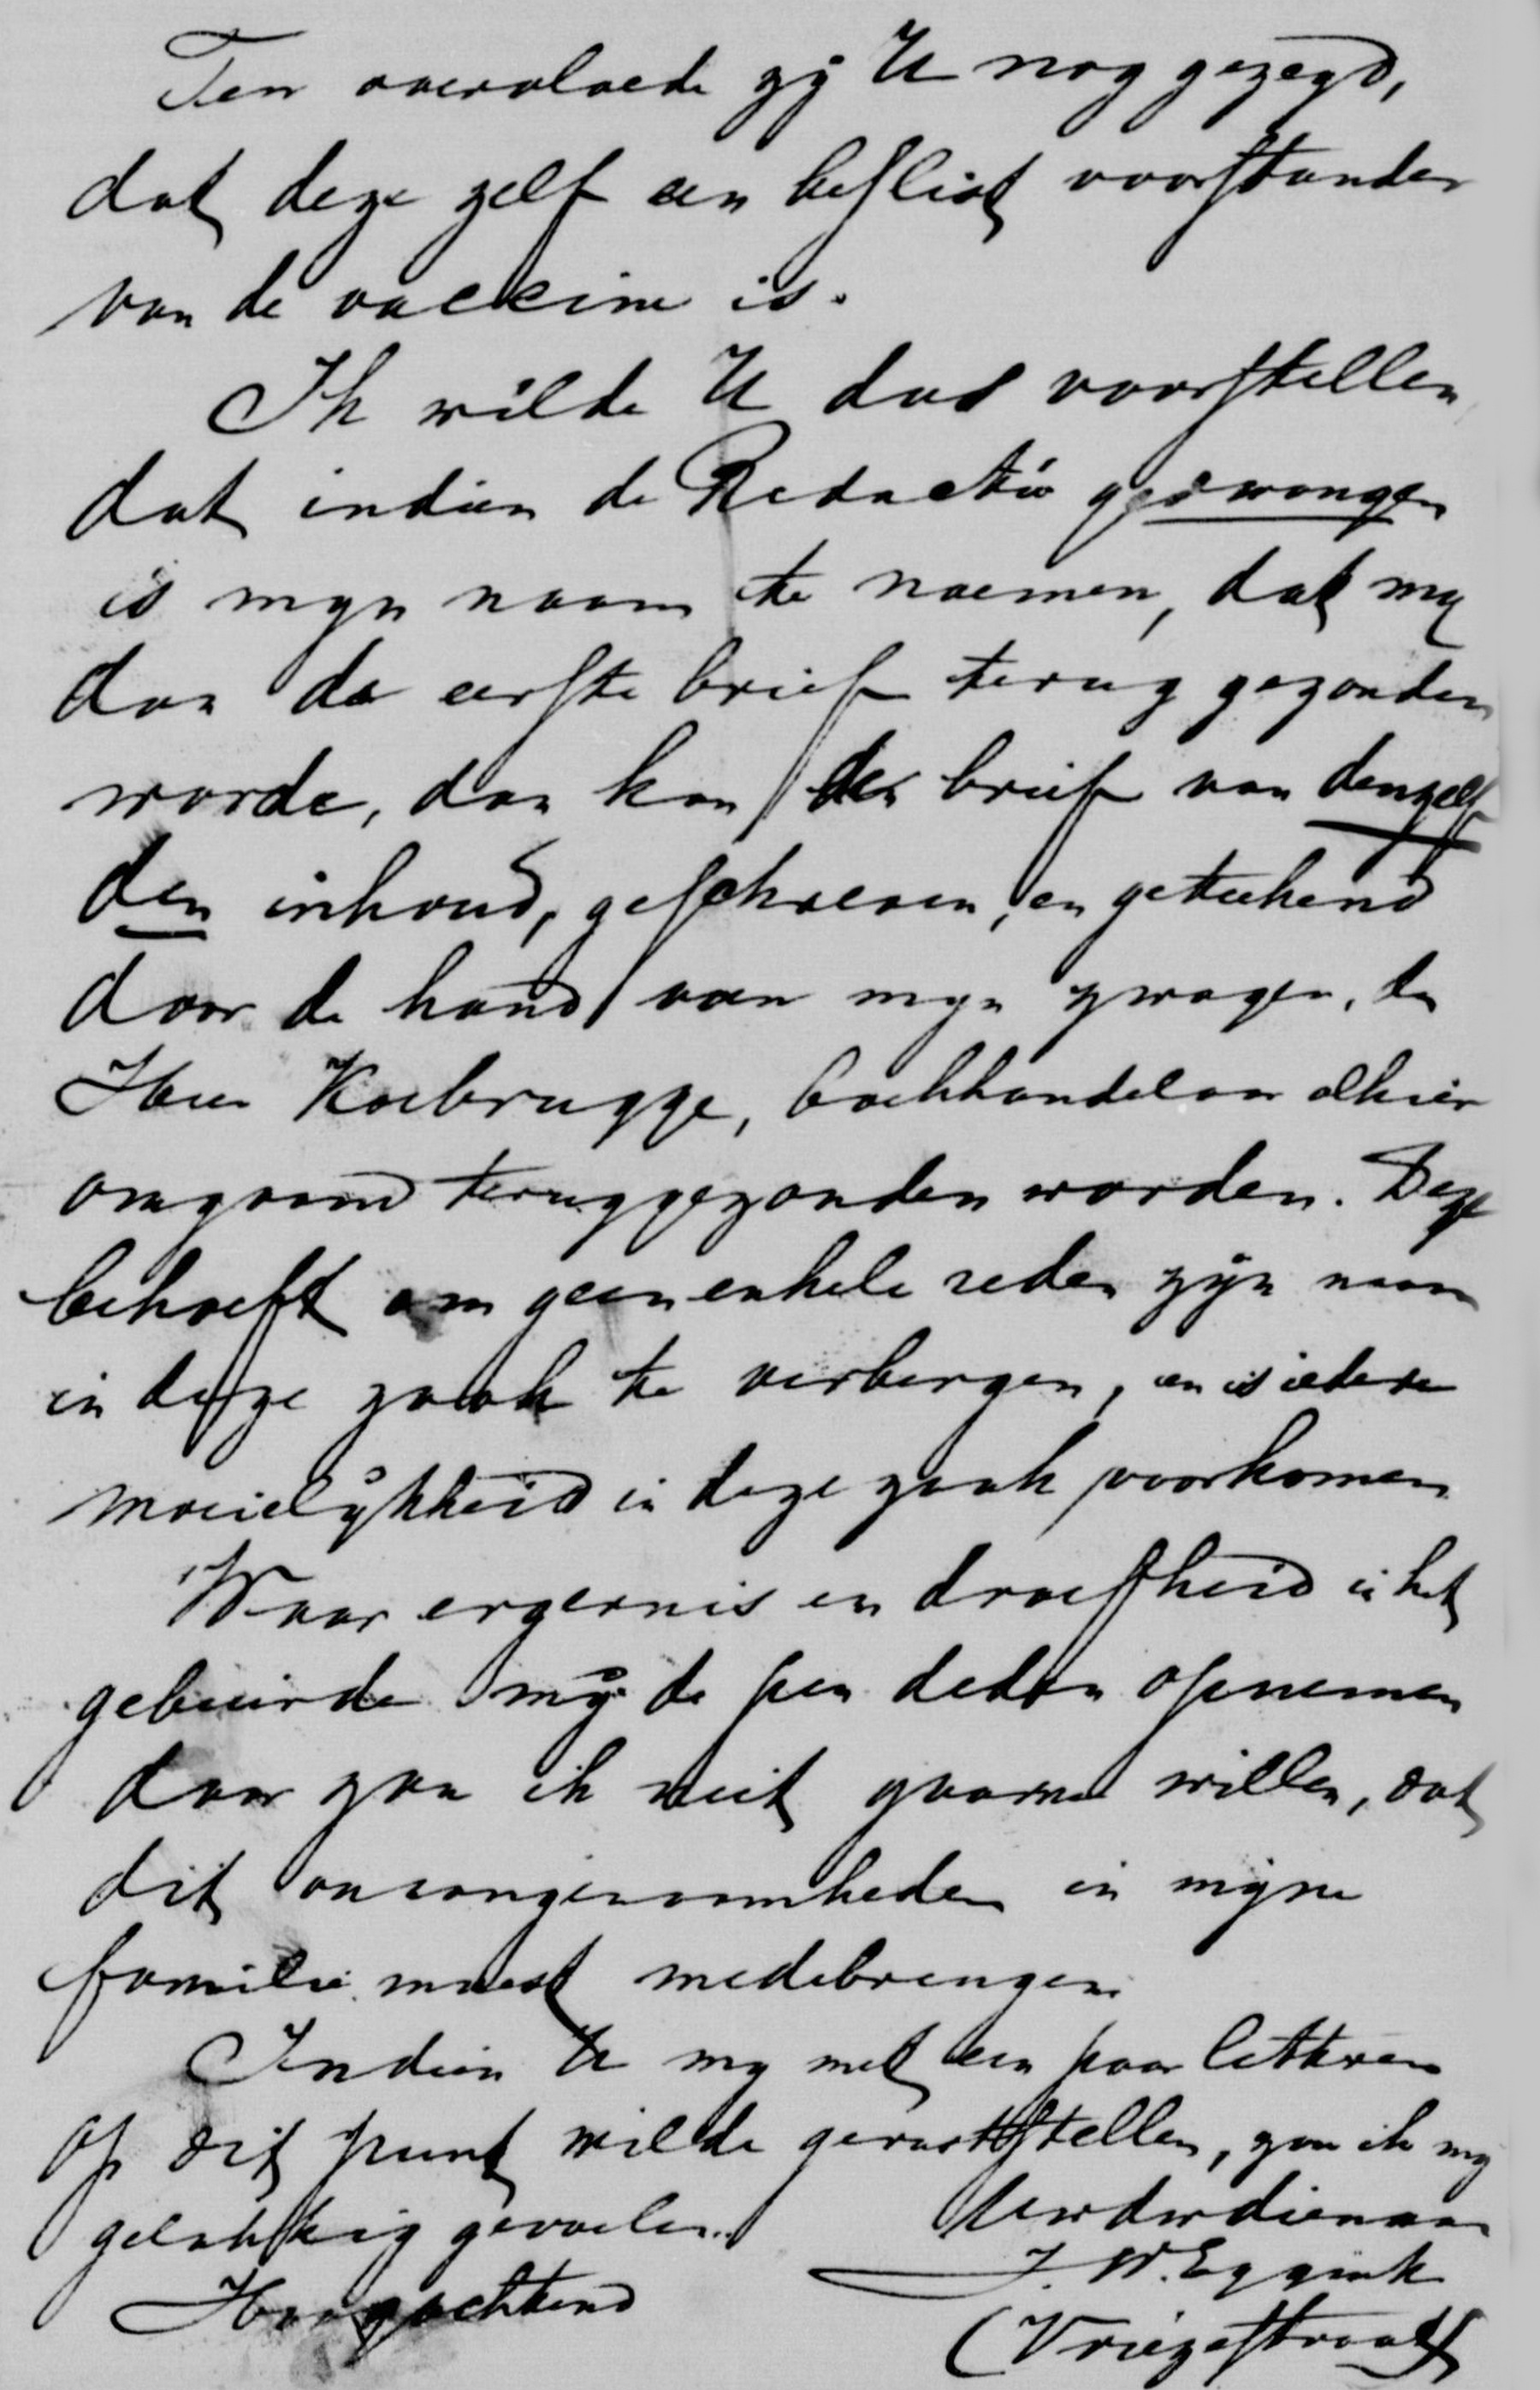 Ten overvloede zij U nog gezegd,
dat deze zelf een beslist voorstander
van de vaccine is.
Ik wilde U dus voorstellen
dat indien de Redactie gedwongen
is mijn naam te noemen, dat mij
dan de eerste brief terug gezonden
worde, dan kan de brief van denzelf
den inhoud, geschreven, en geteekend
door de hand van mijn zwager, den
Heer Koebrugge, boekhandelaar alhier
omgaand teruggezonden worden. Deze
behoeft om geen enkele reden zijn naam
in deze zaak te verbergen, en is iedere
moeielijkheid in deze zaak voorkomen
Waar ergernis en droefheid in het
gebeurde mij de pen deden opnemen
daar zou ik niet gaarne willen, dat
dit onaangenaamheden in mijne
familie moest medebrengen.
Indien U mij met een paar letteren
op dit punt wilde geruststellen, zou ik mij
gelukkig gevoelen.
Hoogachtend
Uwdwdienaar
J. W. Eggink
(Vriezestraat)